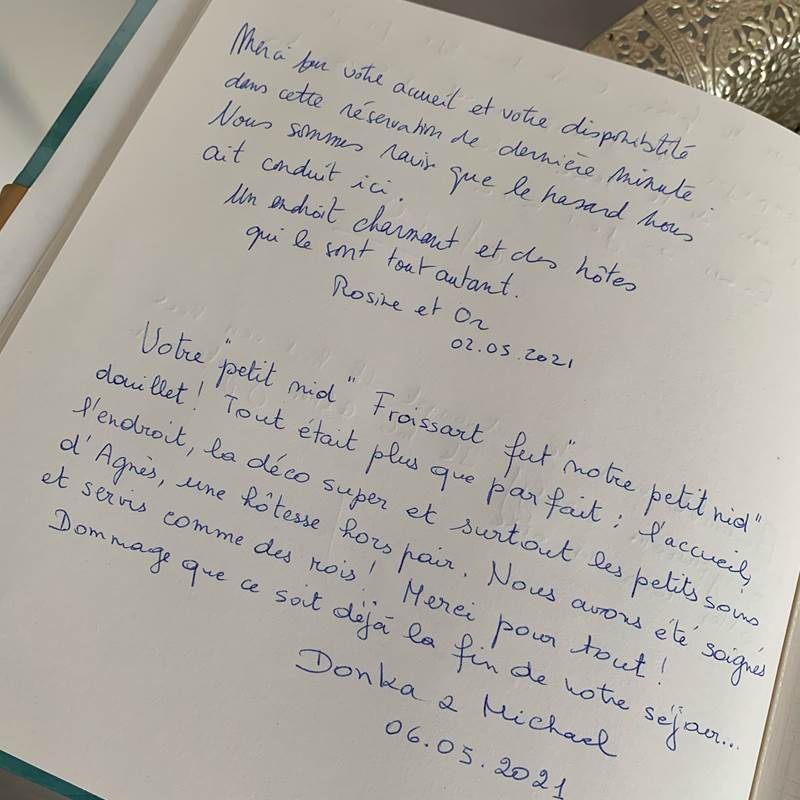 Merci pour votre accueil et votre disponibilité
dans cette réservation de dernière minute.
Nous sommes ravis que le hasard nous
ait conduit ici.
Un endroit charmant et des hôtes
qui le sont tout autant.
Rosine et Or
02.05.2021
Votre "petit nid" Froissart fut "notre petit nid"
douillet! Tout était plus que parfait : l'accueil,
l'endroit, la déco super et surtout les petits soins
d'Agnès, une hôtesse hors pair. Nous avons été soignés
et servis comme des rois! Merci pour tout!
Dommage que ce soit déjà la fin de notre séjour...
Donka & Michael
06.05.2021